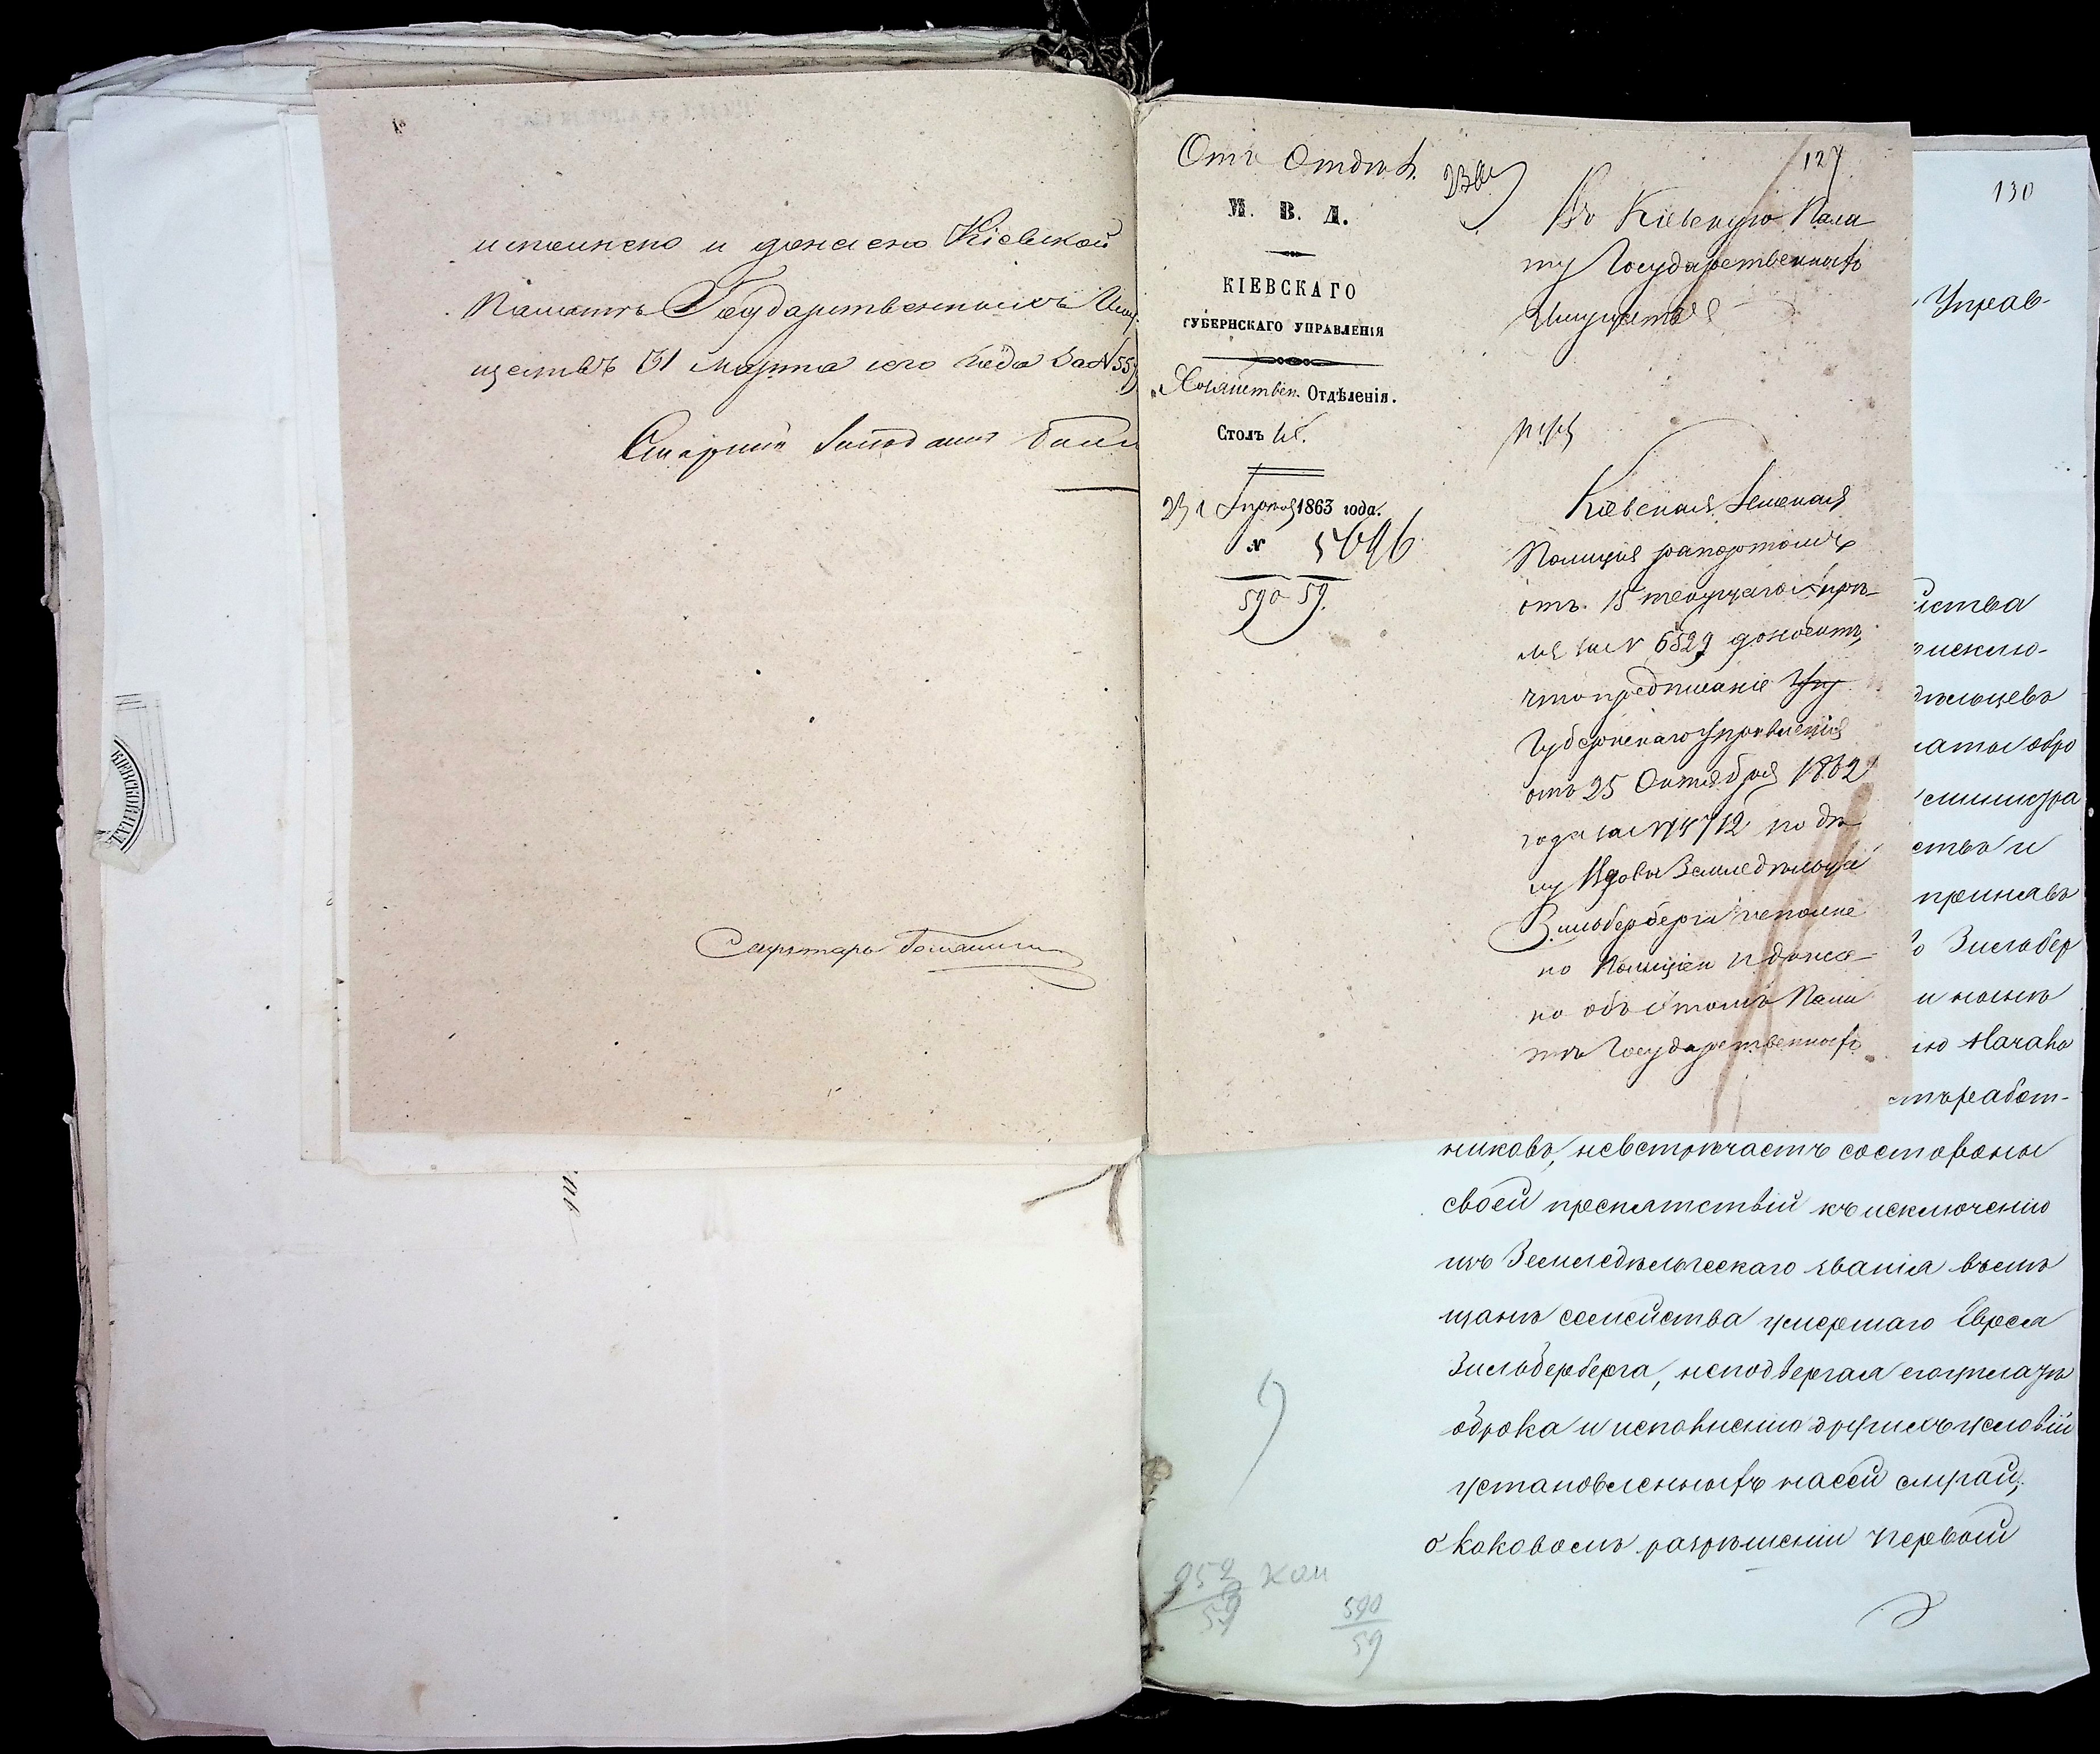 исполнено и донесено Кіевской
Палатѣ Государственныхъ Иму
ществъ 31 Марта сего года за №
Старшій
Секретарь
КІЕВСКОЙ ПАЛ
127
М. В. Д.
КІЕВСКАГО
ГУБЕРНСКАГО УПРАВЛЕНІЯ
Хозяйствен. Отдѣленія.
Столъ
Апрѣля 1863 года.
№ 5696
590 59.
Въ Кіевскую Пала
ту Государственныхъ
Имуществъ
Кіевская Земская
Полиція рапортомъ
отъ 15 текущаго Апрѣ-
ля за № 6529 доноситъ,
что предписаніе
Губернскаго Управленія
отъ 25 Октября 1862
года за № по дѣ
лу Вдовы Земледѣльца
Зильберберга исполне
но Полиціею и донесе
но объ этомъ Пала
тѣ Государственныхъ
130
Управ-
йства
исклю-
дѣльцевъ
латы обро
министра
ствъ и
принявъ
Зильбер
и нынѣ
ию Махано
работ-
никовъ, невстрѣчаетъ состороны
своей препятствій къ исключенію
изъ Земледѣльческаго званія въ мѣ
щане семейства умершаго Еврея
Зильберберга, неподвергая его уплатѣ
оброка и исполненію другихъ условій
установленныхъ на сей случай,
о каковомъ разрѣшеніи первой
952
59
590
59